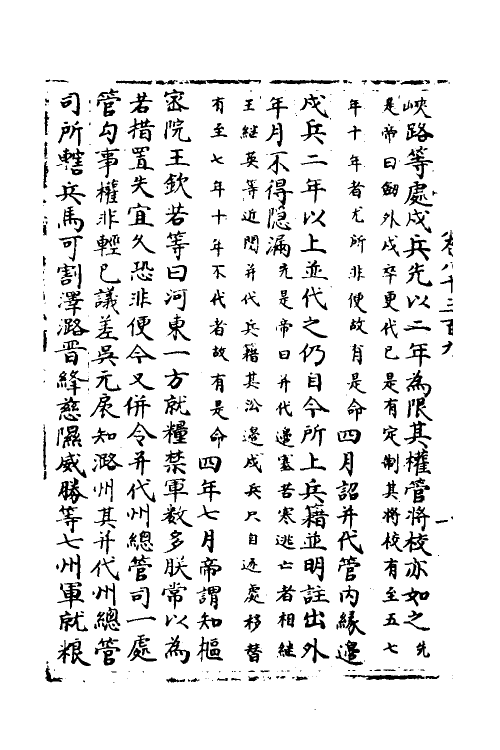 卷八千三百九
一
峽路等處戍兵先以二年為限其權管將校亦如之先
是帝曰劒外戍卒更代已是有定制其將校有至五七
年十年者尤所非便故有是命四月詔并代管内緣邊
戍兵二年以上並代之仍自今所上兵籍並明註出外
年月不得隐漏先是帝曰并代邊塞苦寒逃亡者相継
王継英等近閲并代兵籍其㳂邊戍兵只自逐處移替
有至七年十年不代者故有是命四年七月帝謂知樞
宻院王欽若等曰河東一方就糧禁軍数多朕常以為
若措置失宜久恐非便今又併令并代州總管司一處
管勾事權非輕已議差吳元扆知潞州其并代州總管
司所轄兵馬可割澤潞晋絳慈隰威勝等七州軍就粮